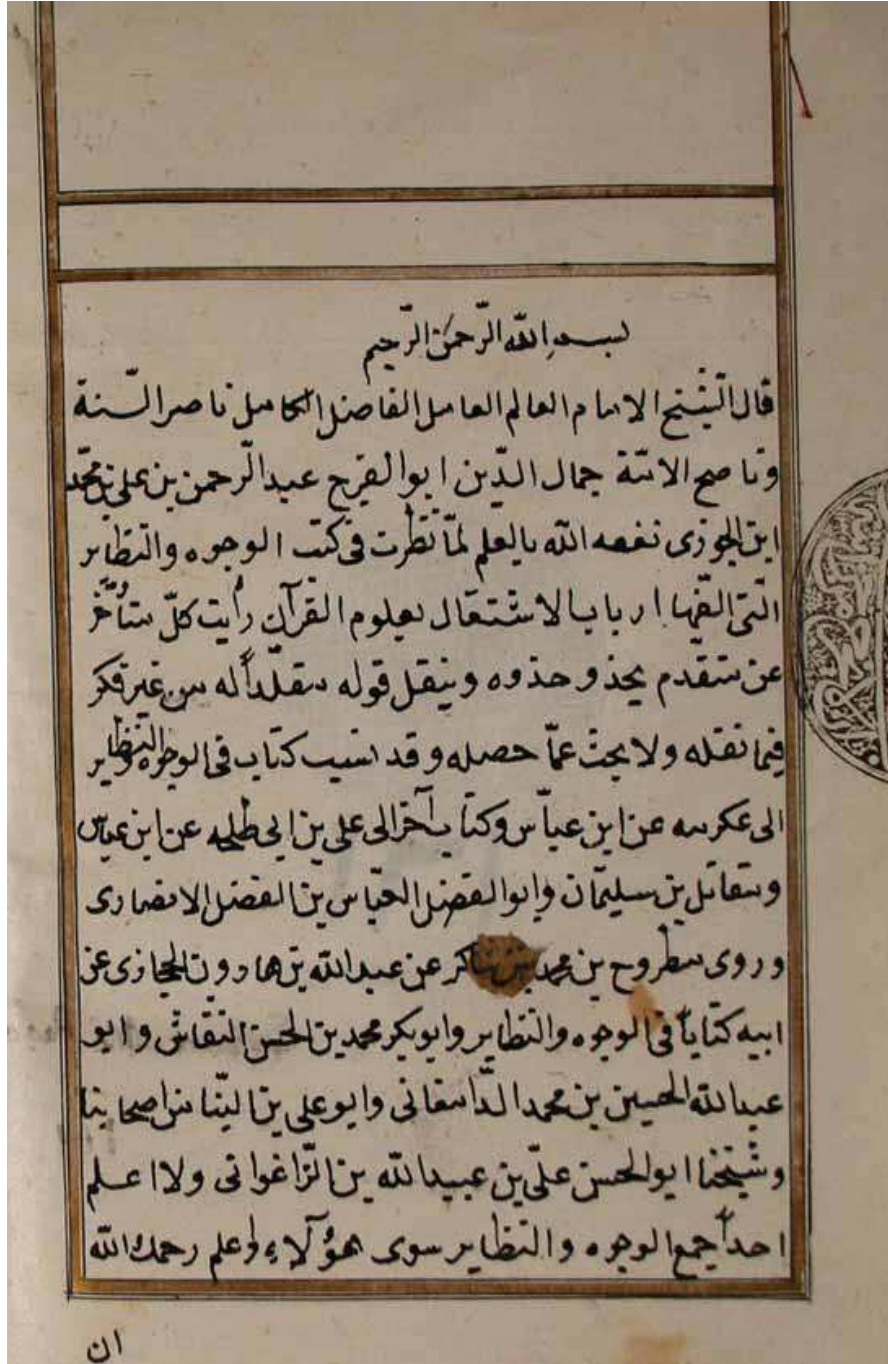 بسم الله الرّحمن الرّحيم
قال الشّيخ الامام العالم العامل الفاضل الكامل ناصر السّنة
وناصح الامّة جمال الدّين ابو الفرج عبد الرّحمن بن علي بن محمّد
ابن الجوزى نفعه الله بالعلم لمّا نظرت فى كتب الوجوه والنظاير
الّتى الّفها ارباب الاشتغال بعلوم القرآن رأيت كلّ متأخّر
عن متقدم يحذو حذوه وينقل قوله مقلّداً له من غير فكر
فيما نقله ولا بحث عمّا حصله وقد نسب كتاب فى الوجوه والنظاير
الى عكرمه عن ابن عبّاس وكتاب آخر الى على بن ابى طلحه عن ابن عباس
ومقاتل بن سليمان وابو الفضل العبّاس بن الفضل الانصارى
وروى مطروح بن محمد بن شاكر عن عبد الله بن هارون الحجازى عن
ابيه كتاباً فى الوجوه والنظاير وابو بكر محمد بن الحسن النقاش وابو
عبد الله الحسين بن محمد الدّامغانى وابو على بن البنّا من اصحابنا
وشيخنا ابو الحسن علّى بن عبيد الله بن الزّاغوانى ولا اعلم
احداً جمع الوجوه والنظاير سوى هؤلآء واعلم رحمك الله
ان